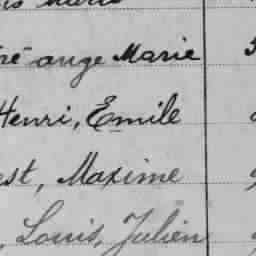 ré ange Marie
Henri, Emile
est, Maxime
, Louis, Julien